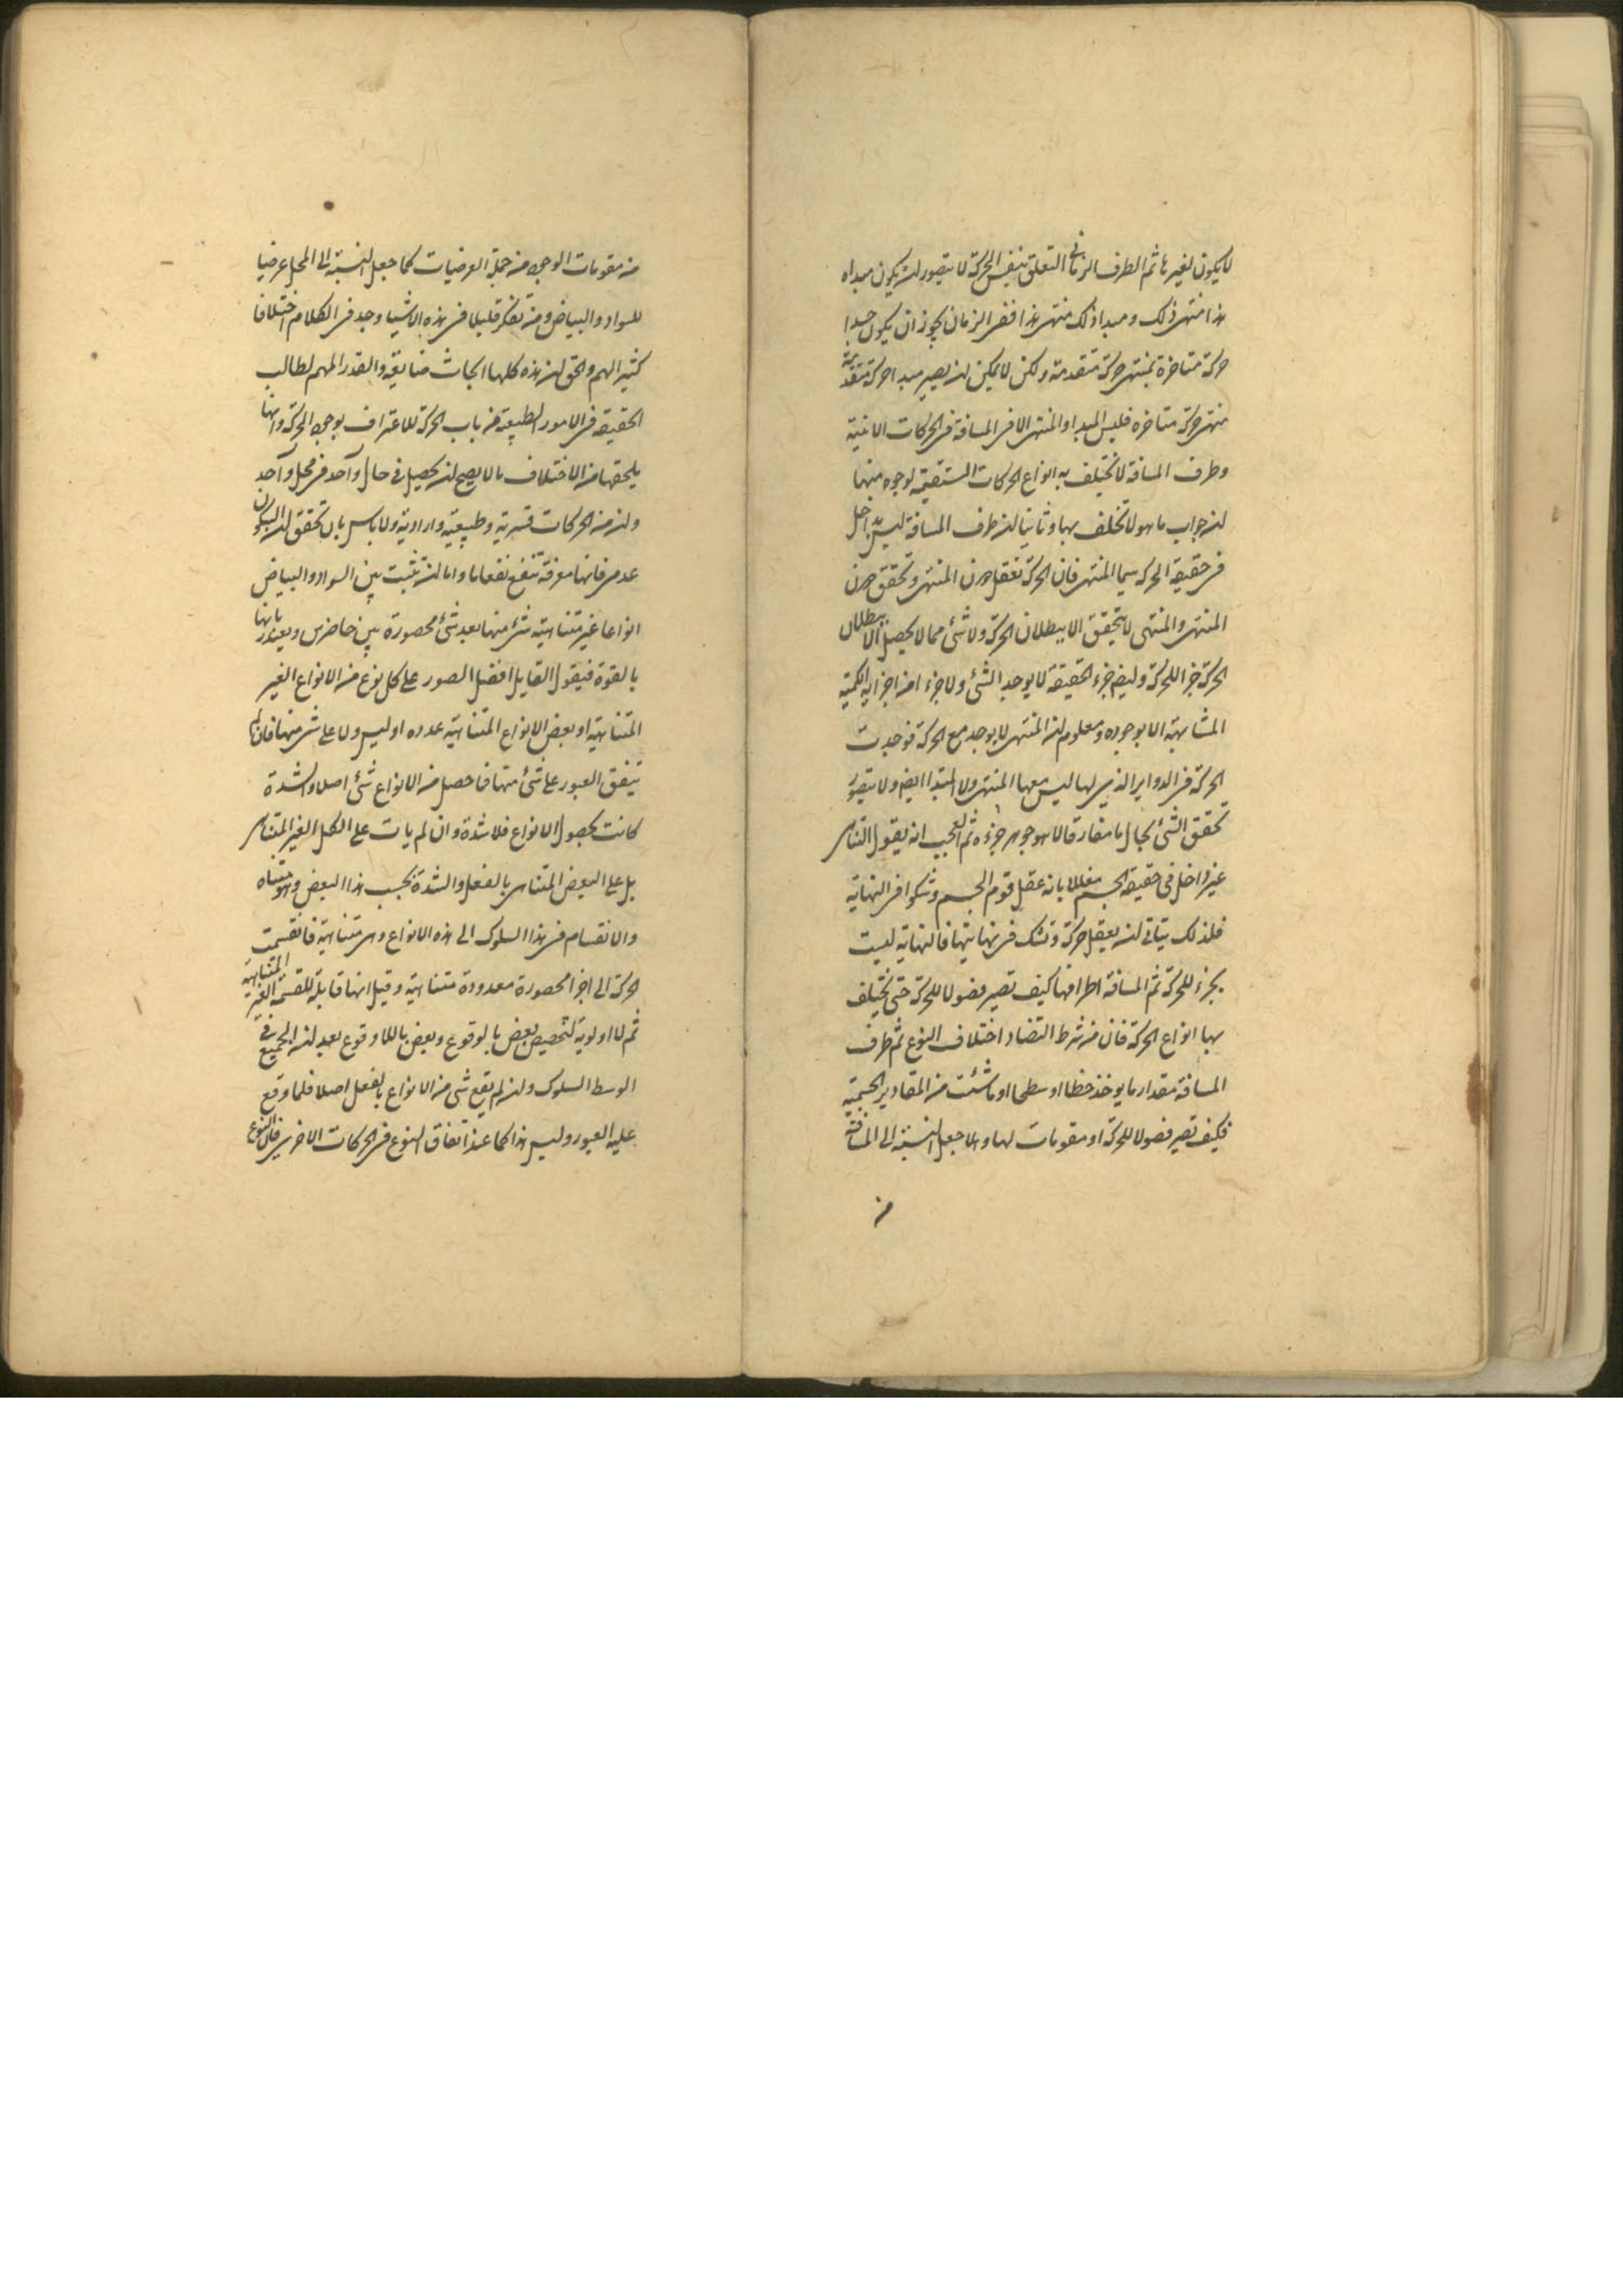 لا يكون لغيرها ثم الطرف الزماني المتعلق بنفس الحركة لا يتصور ان يكون مبداه
هذا منتهى ذلك ومبدا ذلك منتهى هذا ففى الزمان يجوز ان يكون مبدا
حركة متاخرة بمنتهى حركة متقدمة ولكن لا يمكن ان يصير مبدا حركة متقدمة
منتهى حركة متاخره فليس المبدا والمنتهى الا فى المسافة فى الحركات الاينية
وطرف المسافة لا تختلف به انواع الحركات المستقيمة لوجوه منها
ان جواب ما هو لا تختلف بها وثانيا ان طرف المسافة ليس بداخل
فى حقيقة الحركه سيما المنتهى فان الحركة تعقل دون المنتهى وتحقق دون
المنتهى والمنتهى لا يتحقق الا ببطلان الحركة ولا شئ مما لا يحصل الا ببطلان
الحركة جزا للحركة وليضم جزء الحقيقة لا يوجد الشئ ولا جزء من اجزايه الكمية
المشابهة الا بوجوده ومعلوم ان المنتهى لا يوجد مع الحركة فوجدت
الحركة فى الدواير الذى لها ليس معها المنتهى ولا المبتدا ايضم ولا يتصور
تحقق الشئ بحال ما مفارقا لا هو جوهر جزءه ثم العجب انه يقول التناهى
غير داخل فى حقيقة الجسم معللا بانه عقل قوم الجسم وشكوا فى النهاية
فلذلك يتاتى ان يعقل حركة وتشك فى نهايتها فالنهاية ليست
بجزء للحركة ثم المسافة اطرافها كيف تصير فصولا للحركة حتى تختلف
بها انواع الحركة فان من شرط التضاد اختلاف النوع ثم طرف
المسافة مقدار ما يوخذ خطا او سطحا او ما شئت من المقادير الجسمية
فكيف تصير فصولا للحركة او مقومات لها والا جعل النسبة الى المسافة
من
من مقومات الوجوه من جملة العرضيات كما جعل النسبة الى المحل عرضيا
للسواد والبياض ومن تفكر قليلا فى هذه الاشيا وجد فى الكلام اختلافا
كثيرا لهم والحق ان هذه كلها ابحاث ضايعة والقدر المهم لطالب
الحقيقة فى الامور الطبيعة من باب الحركة للاعتراف بوجود الحركة وانها
يلحقها من الاختلاف ما لا يصح ان يحصل فى حال واحد فى محل واحد
وان من الحركات قسرية وطبيعية وارادية ولا باس بان تحقق ان السكون
عدمى فانها معرفة تنفع نفعا ما واما ان تثبت بين السواد والبياض
انواعا غير متناهية شئ منها بعد شئ محصورة بين حاضرين ويعتذر بانها
بالقوة فيقول القايل افضل الصور على كل نوع من الانواع الغير
المتناهية او بعض الانواع المتناهية عدده او ليس ولا على شئ منها فان لم
يتفق العبور على شئ منها فما حصل من الانواع شئ اصلا والشدة
كانت بحصول الانواع فلا شدة وان لم يات على الكل الغير المتناهى
بل على البعض المتناهى بالفعل والشدة بحسب هذا البعض وهو متناه
والانقسام فى هذا السلوك الى هذه الانواع وهى متناهية فانقسمت
الحركة الى اجزا محصورة معدودة متناهية وقيل انها قابلة للقسمة الغير المتناهية
ثم لا اولوية لتخصيص بعض بالوقوع وبعض باللا وقوع بعد ان الجميع فى
الوسط السلوك وان لم يقع شئ من الانواع بالفعل اصلا فلما وقع
عليه العبور وليس هذا كما عند اتفاق النوع فى الحركات الاخرى فان النوع